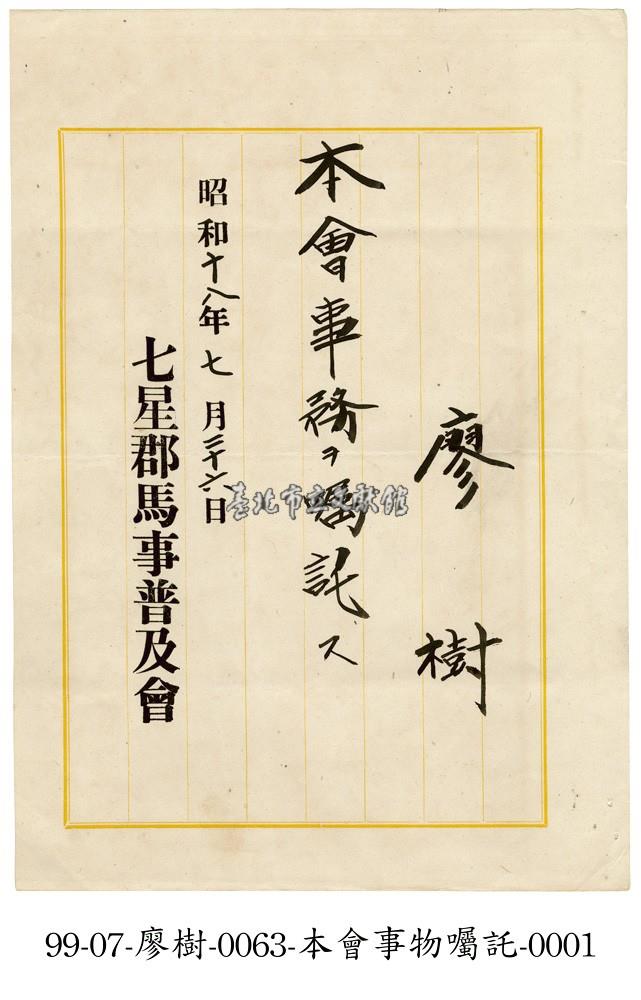 廖樹
本會事務ヲ囑託ス
昭和十八年七月二十六日
七星郡馬事普及會
臺北市立文獻館
99-07-廖樹-0063-本會事物囑託-0001